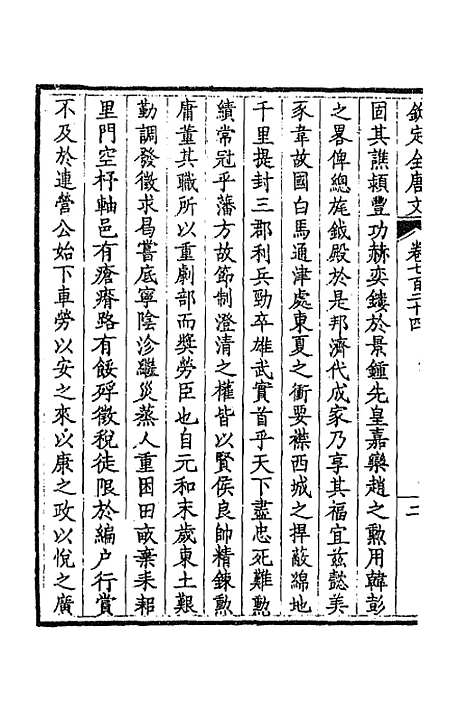 欽定全唐文
卷七百二十四
二
固其譙頛豐功赫奕鏤於景鍾先皇嘉欒趙之勲用韓彭
之畧俾總旄鉞殿於是邦濟代成家乃享其福宜兹懿美
豕韋故國白馬通津處東夏之衝要襟西城之捍蔽綿地
千里提封三郡利兵勁卒雄武實首乎天下盡忠死難勲
績常冠乎藩方故節制澄清之權皆以賢侯良帥精鍊勲
庸董其職所以重劇部而奬勞臣也自元和末歲東土艱
勤調發徵求曷嘗底寧陰沴繼災蒸人重困田畝棄耒耜
里門空杼軸邑有瘡瘠路有餒殍徵稅徒限於編户行賞
不及於連營公始下車勞以安之來以康之政以悅之廣